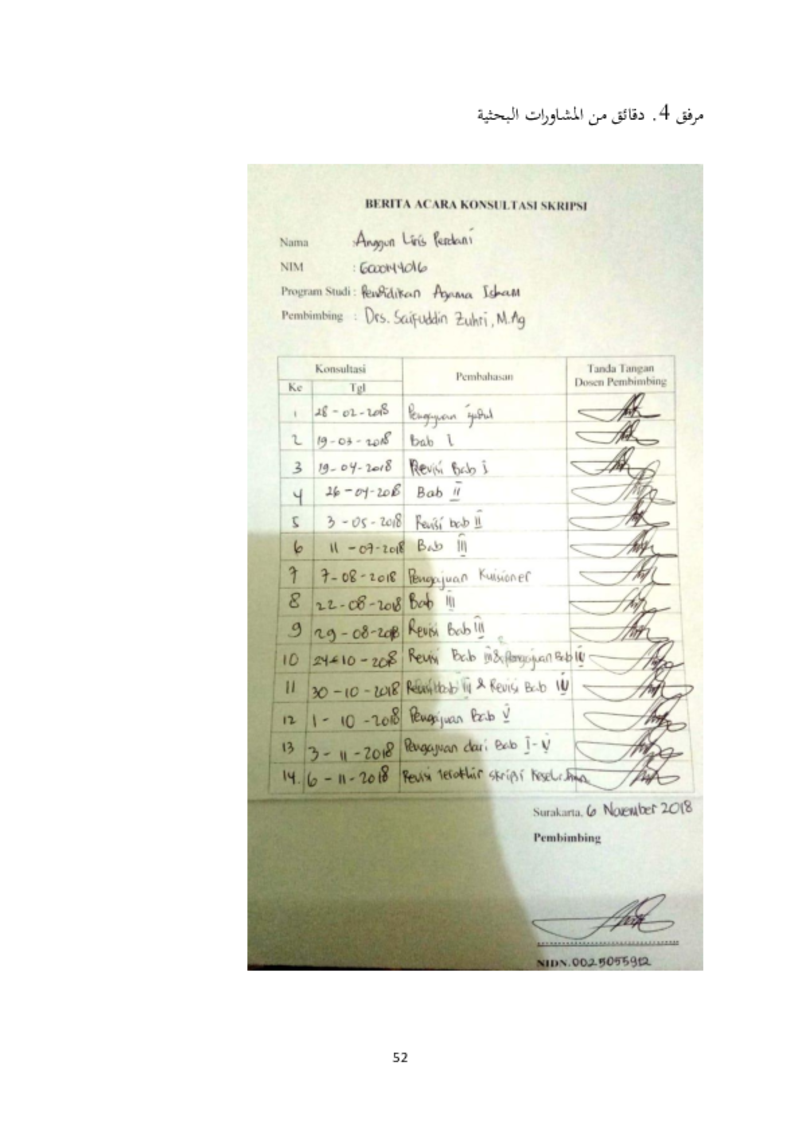 مرفق 4. دقائق من المشاورات البحثية
BERITA ACARA KONSULTASI SKRIPSI
Nama : Anggun Liris Perdani
NIM : G000144016
Program Studi : Pendidikan Agama Islam
Pembimbing : Drs. Saifuddin Zuhri, M.Ag
Konsultasi Pembahasan Tanda Tangan Dosen Pembimbing
Ke Tgl
1 28 - 02 - 2018 Pengajuan judul
2 19 - 03 - 2018 Bab I
3 19 - 04 - 2018 Revisi Bab I
4 26 - 04 - 2018 Bab II
5 3 - 05 - 2018 Revisi bab II
6 11 - 07 - 2018 Bab III
7 7 - 08 - 2018 Pengajuan Kuisioner
8 22 - 08 - 2018 Bab III
9 29 - 08 - 2018 Revisi Bab III
10 24 - 10 - 2018 Revisi Bab III & Pengajuan Bab IV
11 30 - 10 - 2018 Revisi bab III & Revisi Bab IV
12 1 - 10 - 2018 Pengajuan Bab V
13 3 - 11 - 2018 Pengajuan dari Bab I - V
14. 6 - 11 - 2018 Revisi terakhir skripsi
Surakarta, 6 November 2018
Pembimbing
NIDN. 0025055912
52